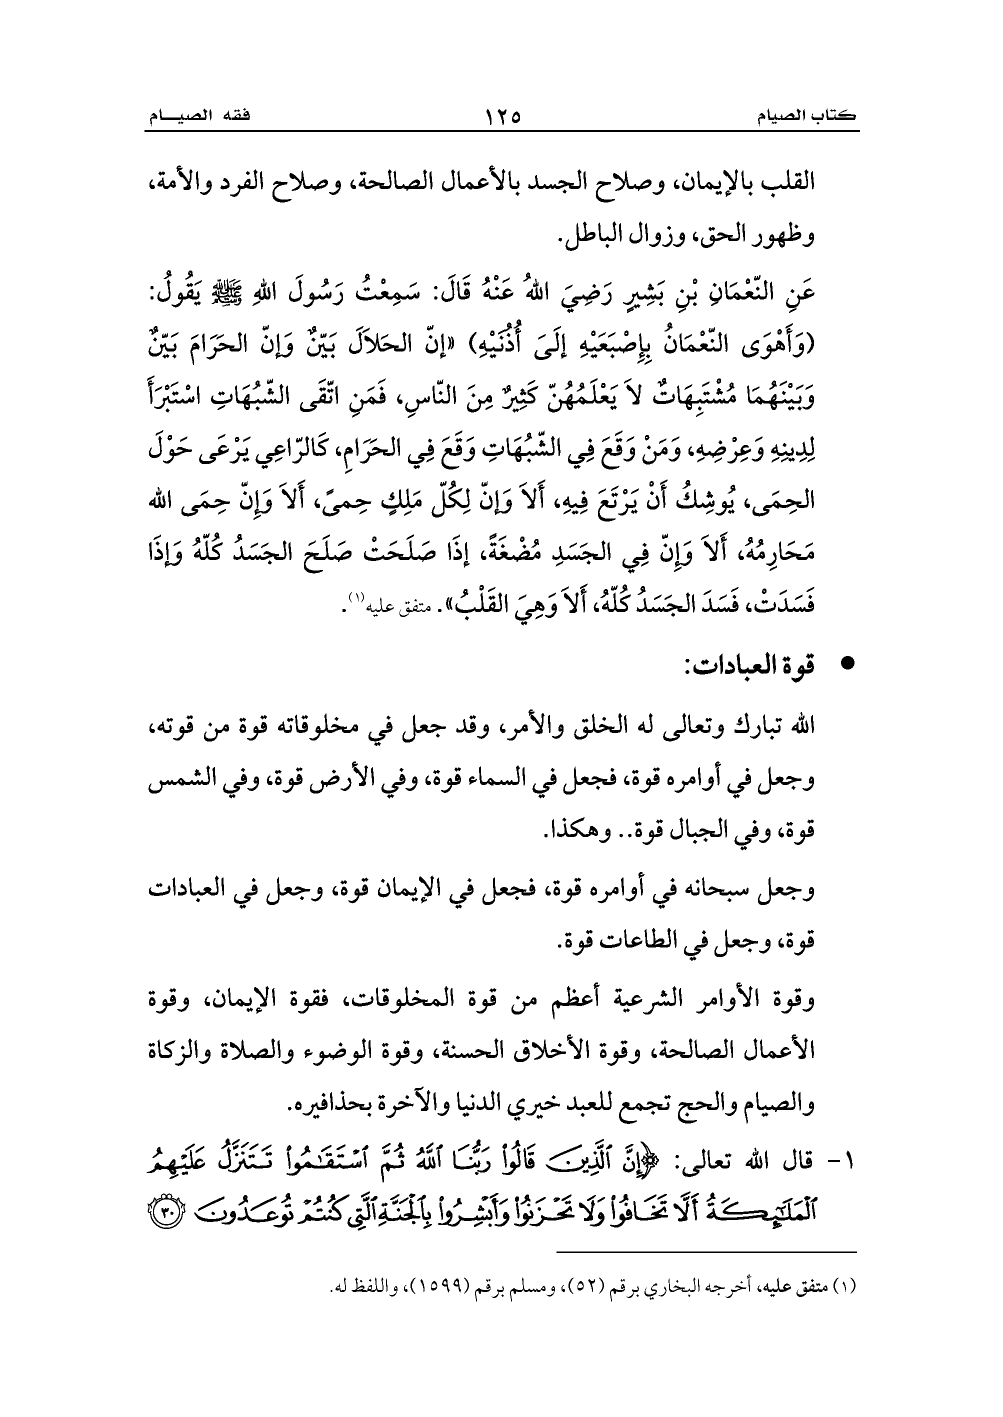 كتاب الصيام ١٢٥ فقه الصيـــام
القلب بالإيمان، وصلاح الجسد بالأعمال الصالحة، وصلاح الفرد والأمة،
وظهور الحق، وزوال الباطل.
عَنِ النّعْمَانِ بْنِ بَشِيرٍ رَضِيَ اللهُ عَنْهُ قَالَ: سَمِعْتُ رَسُولَ اللهِ ﷺ يَقُولُ:
(وَأَهْوَى النّعْمَانُ بِإِصْبَعَيْهِ إلَىَ أُذُنَيْهِ) «إنّ الحَلاَلَ بَيّنٌ وَإنّ الحَرَامَ بَيّنٌ
وَبَيْنَهُمَا مُشْتَبِهَاتٌ لاَ يَعْلَمُهُنّ كَثِيرٌ مِنَ النّاسِ، فَمَنِ اتّقَى الشّبُهَاتِ اسْتَبْرَأَ
لِدِينِهِ وَعِرْضِهِ، وَمَنْ وَقَعَ فِي الشّبُهَاتِ وَقَعَ فِي الحَرَامِ، كَالرّاعِي يَرْعَى حَوْلَ
الحِمَى، يُوشِكُ أَنْ يَرْتَعَ فِيهِ، أَلاَ وَإنّ لِكُلّ مَلِكٍ حِمىً، أَلاَ وَإِنّ حِمَى الله
مَحَارِمُهُ، أَلاَ وَإنّ فِي الجَسَدِ مُضْغَةً، إذَا صَلَحَتْ صَلَحَ الجَسَدُ كُلّهُ وَإذَا
فَسَدَتْ، فَسَدَ الجَسَدُ كُلّهُ، أَلاَ وَهِيَ القَلْبُ». متفق عليه(١).
● قوة العبادات:
الله تبارك وتعالى له الخلق والأمر، وقد جعل في مخلوقاته قوة من قوته،
وجعل في أوامره قوة، فجعل في السماء قوة، وفي الأرض قوة، وفي الشمس
قوة، وفي الجبال قوة.. وهكذا.
وجعل سبحانه في أوامره قوة، فجعل في الإيمان قوة، وجعل في العبادات
قوة، وجعل في الطاعات قوة.
وقوة الأوامر الشرعية أعظم من قوة المخلوقات، فقوة الإيمان، وقوة
الأعمال الصالحة، وقوة الأخلاق الحسنة، وقوة الوضوء والصلاة والزكاة
والصيام والحج تجمع للعبد خيري الدنيا والآخرة بحذافيره.
١- قال الله تعالى: ﴿إِنَّ ٱلَّذِينَ قَالُوا۟ رَبُّنَا ٱللَّهُ ثُمَّ ٱسْتَقَٰمُوا۟ تَتَنَزَّلُ عَلَيْهِمُ
ٱلْمَلَٰٓئِكَةُ أَلَّا تَخَافُوا۟ وَلَا تَحْزَنُوا۟ وَأَبْشِرُوا۟ بِٱلْجَنَّةِ ٱلَّتِى كُنتُمْ تُوعَدُونَ ٣٠
(١) متفق عليه، أخرجه البخاري برقم (٥٢)، ومسلم برقم (١٥٩٩)، واللفظ له.